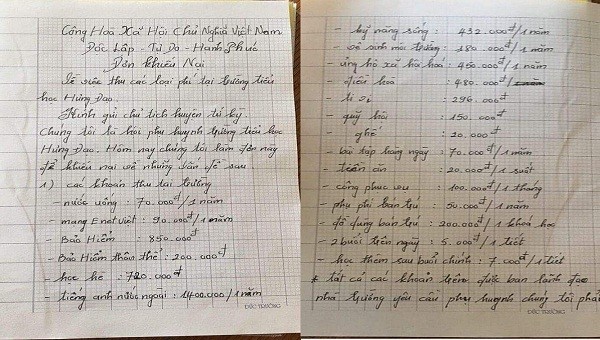 Cộng Hoà Xã Hội Chủ Nghĩa Việt Nam
Độc Lập - Tự Do - Hạnh Phúc
Đơn khiếu Nại
Về việc thu các loại phí tại trường tiểu
học Hưng Đạo.
Kính gửi chủ tịch huyện tứ kỳ.
Chúng tôi là hội phụ huynh trường tiểu học
Hưng Đạo. Hôm nay chúng tôi làm đơn này
để khiếu nại về những vấn đề sau
1) các khoản thu tại trường
- nước uống : 70.000đ/1 năm
- mạng Enetviet : 90.000đ/1 năm
- Bảo Hiểm : 850.000đ
- Bảo Hiểm thân thể : 200.000đ
- học hè : 720.000đ
- tiếng anh nước ngoài : 1400.000/1 năm
ĐỨC TRƯỜNG
- kỹ năng sống : 432.000đ/1 năm
- vệ sinh môi trường : 180.000đ/1 năm
- ủng hộ xã hội hoá : 450.000đ/1 năm
- điều hoà : 480.000đ
- ti vi : 296.000đ
- quỹ hội : 150.000đ
- ghế : 20.000đ
- bài tập hàng ngày : 70.000đ/1 năm
- tiền ăn : 20.000đ/1 suất
- công phục vụ : 100.000đ/1 tháng
- phụ phí bán trú : 50.000đ/1 năm
- đồ dùng bán trú : 200.000đ/1 khoá học
- 2 buổi trên ngày : 5.000đ/1 tiết
- học thêm sau buổi chính : 7.000đ/1 tiết
* tất cả các khoản trên được ban lãnh đạo
nhà trường yêu cầu phụ huynh chúng tôi phải
ĐỨC TRƯỜNG